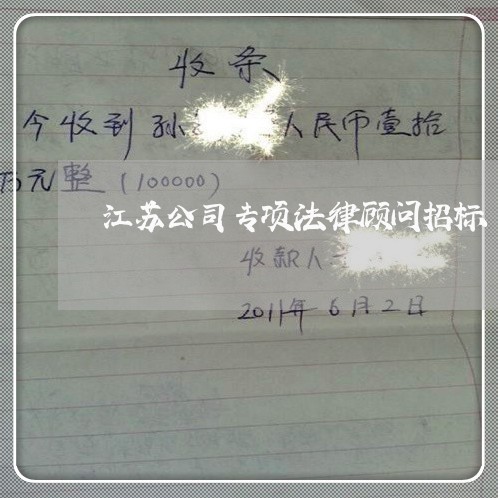 收条
今收到孙 人民币壹拾
万元整（100000）
江苏公司专项法律顾问招标
收款人
2011年6月2日